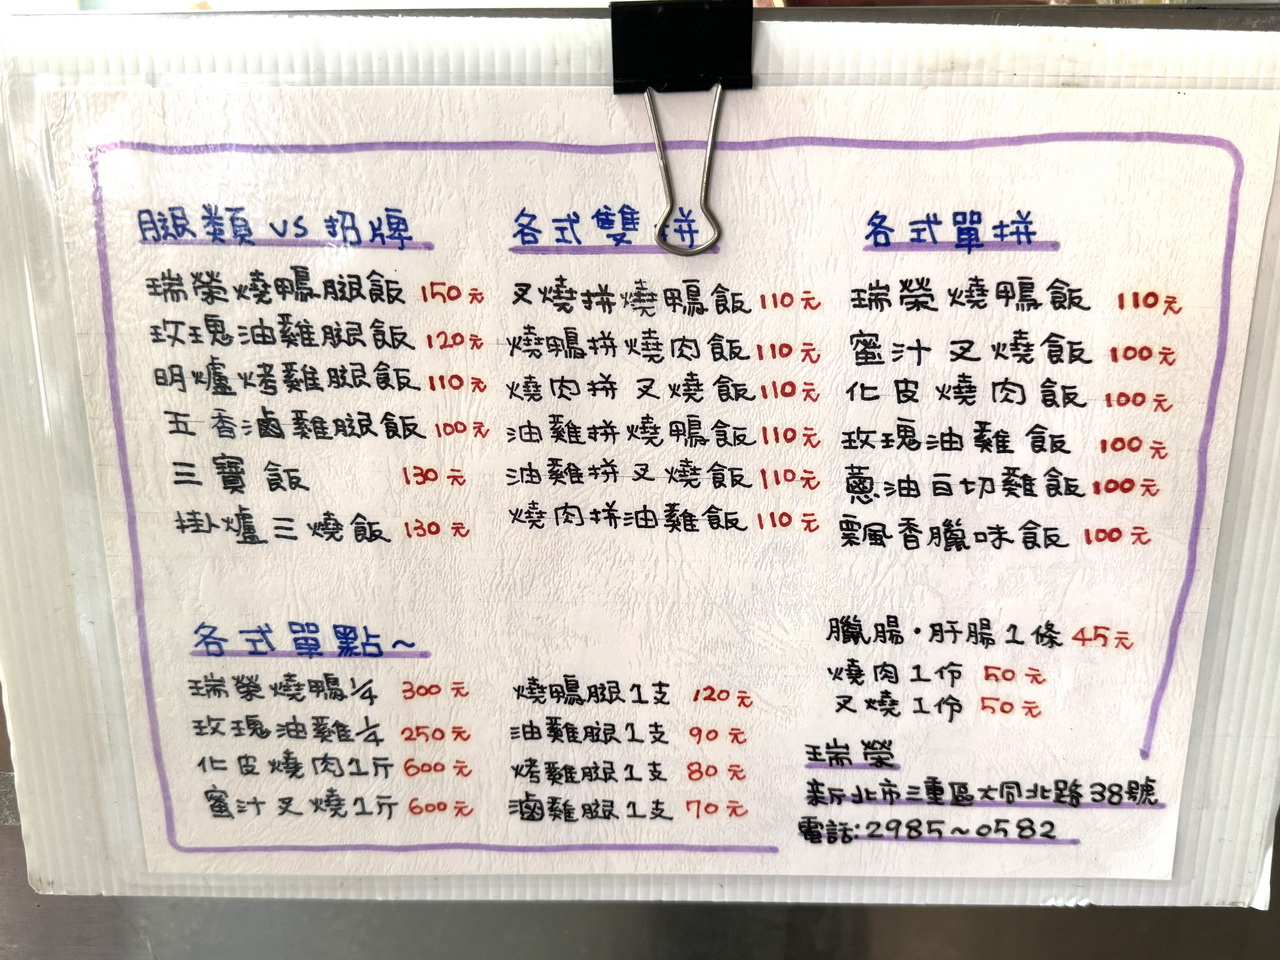 腿類 VS 招牌
瑞榮燒鴨腿飯 150元
玫瑰油雞腿飯 120元
明爐烤雞腿飯 110元
五香滷雞腿飯 100元
三寶飯 130元
掛爐三燒飯 130元
各式雙拼
叉燒拼燒鴨飯 110元
燒鴨拼燒肉飯 110元
燒肉拼叉燒飯 110元
油雞拼燒鴨飯 110元
油雞拼叉燒飯 110元
燒肉拼油雞飯 110元
各式單拼
瑞榮燒鴨飯 110元
蜜汁叉燒飯 100元
化皮燒肉飯 100元
玫瑰油雞飯 100元
蔥油白切雞飯 100元
飄香臘味飯 100元
各式單點~
瑞榮燒鴨1/4 300元
玫瑰油雞1/4 250元
化皮燒肉1斤 600元
蜜汁叉燒1斤 600元
燒鴨腿1支 120元
油雞腿1支 90元
烤雞腿1支 80元
滷雞腿1支 70元
臘腸·肝腸1條 45元
燒肉1份 50元
叉燒1份 50元
瑞榮
新北市三重區大同北路38號
電話:2985~0582